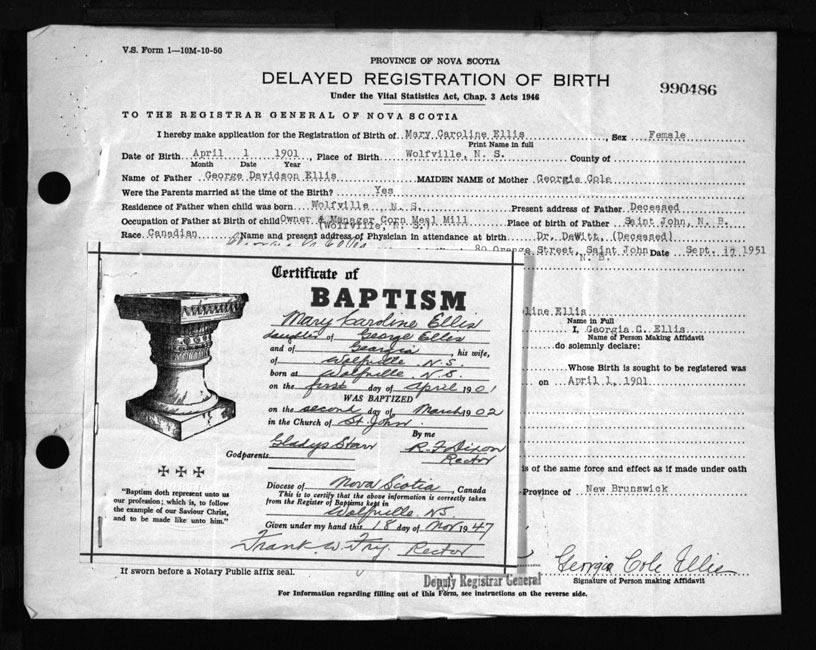 V.S. Form 1—10M-10-50
PROVINCE OF NOVA SCOTIA
DELAYED REGISTRATION OF BIRTH
990486
Under the Vital Statistics Act, Chap. 3 Acts 1946
TO THE REGISTRAR GENERAL OF NOVA SCOTIA
I hereby make application for the Registration of Birth of Mary Caroline Ellis, Sex Female
Print Name in full
Date of Birth April 1 1901, Place of Birth Wolfville, N. S. County of
Month Date Year
Name of Father George Davidson Ellis MAIDEN NAME of Mother Georgia Cole
Were the Parents married at the time of the Birth? Yes
Residence of Father when child was born Wolfville N. S. Present address of Father Deceased
Occupation of Father at Birth of child Owner & Manager Corn Meal Mill Place of birth of Father Saint John, N. B.
(Wolfville, N. S.)
Race Canadian Name and present address of Physician in attendance at birth Dr. DeWitt, (Deceased)
80 Orange Street, Saint John Date Sept. 17 1951
N. B.
Certificate of
BAPTISM
Mary Caroline Ellis
daughter of George Ellis
and of Georgia, his wife,
of Wolfville N.S.
born at Wolfville N.S.
on the first day of April 1901
WAS BAPTIZED
on the second day of March 1902
in the Church of St John.
By me
Gladys Starr R. F. Dixon
Godparents Rector
Diocese of Nova Scotia, Canada
This is to certify that the above information is correctly taken
from the Register of Baptisms kept in
Wolfville NS
Given under my hand this 18 day of Nov 1947
Frank W. Fry. Rector
"Baptism doth represent unto us
our profession; which is, to follow
the example of our Saviour Christ,
and to be made like unto him."
line Ellis
Name in Full
I, Georgia C. Ellis
Name of Person Making Affidavit
do solemnly declare:
Whose Birth is sought to be registered was
on April 1, 1901
is of the same force and effect as if made under oath
Province of New Brunswick
Georgia Cole Ellis
Deputy Registrar General
Signature of Person making Affidavit
If sworn before a Notary Public affix seal.
For Information regarding filling out of this Form, see instructions on the reverse side.